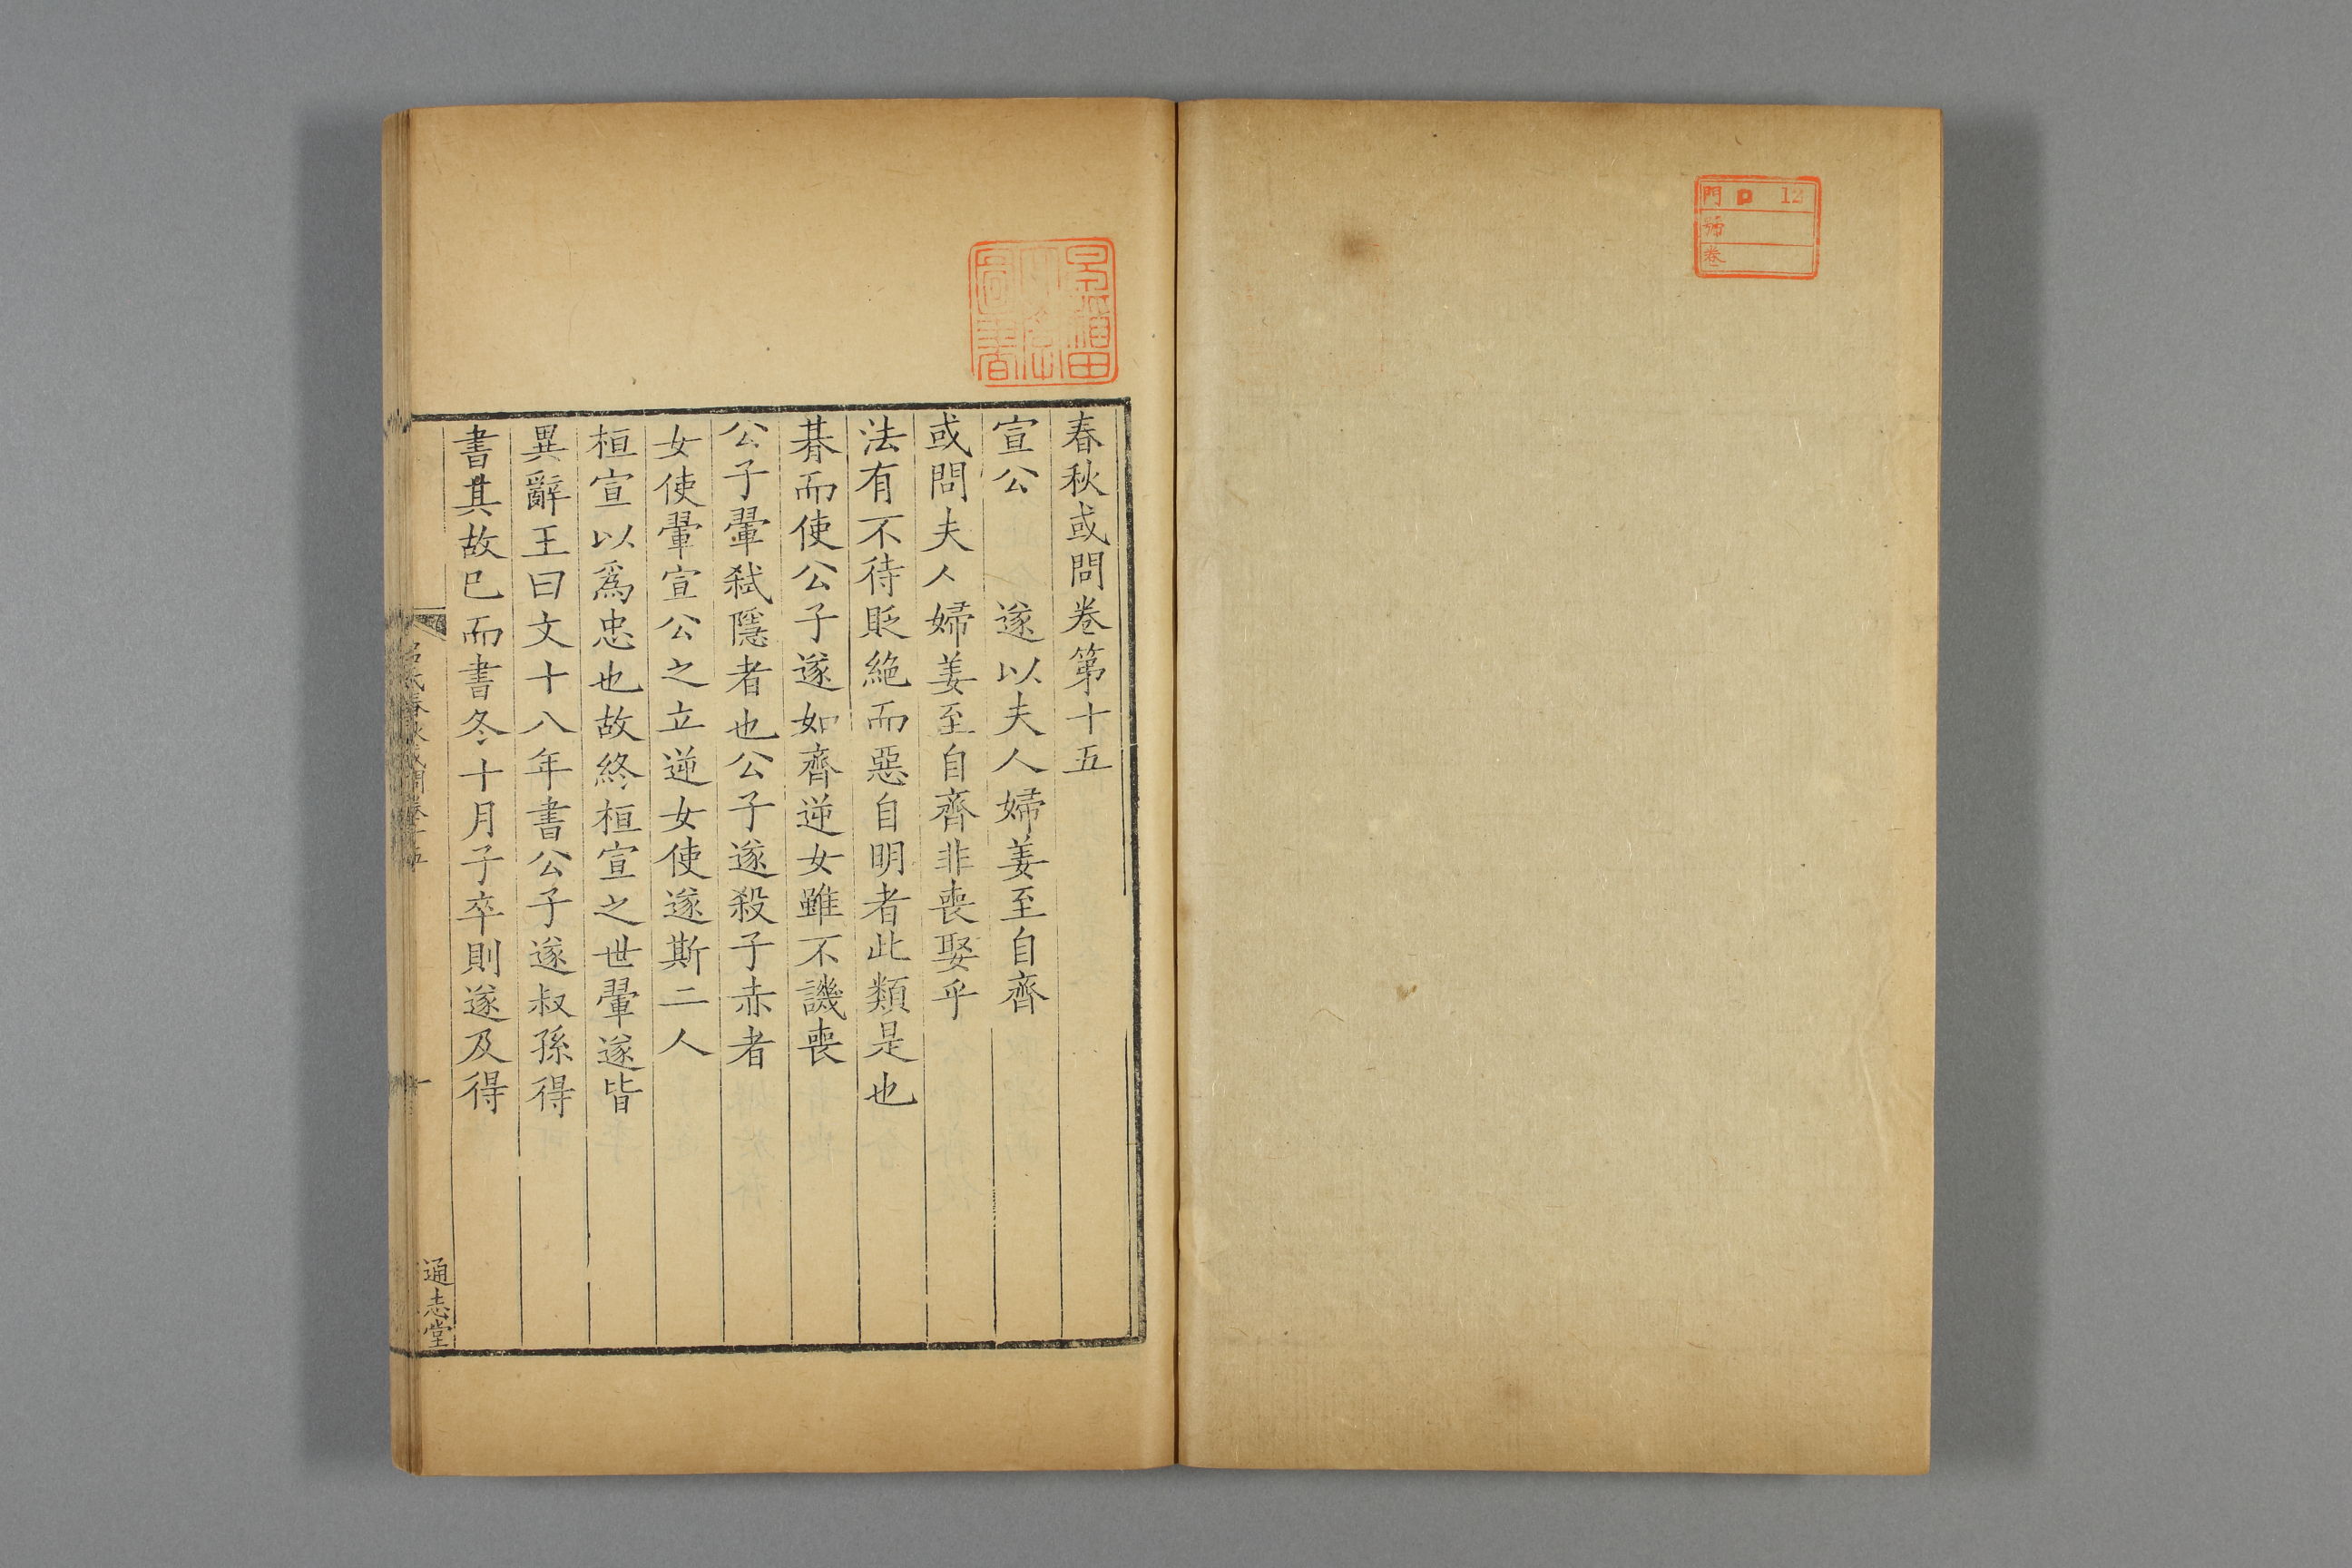 門 D 12
號
卷
春秋或問卷第十五
宣公 遂以夫人婦姜至自齊
或問夫人婦姜至自齊非喪娶乎
法有不待貶絶而惡自明者此類是也
朞而使公子遂如齊逆女雖不譏喪
公子翬弑隱者也公子遂殺子赤者
女使翬宣公之立逆女使遂斯二人
桓宣以爲忠也故終桓宣之世翬遂皆
異辭王曰文十八年書公子遂叔孫得
書其故巳而書冬十月子卒則遂及得
呂氏春秋或問卷十五
一
通志堂